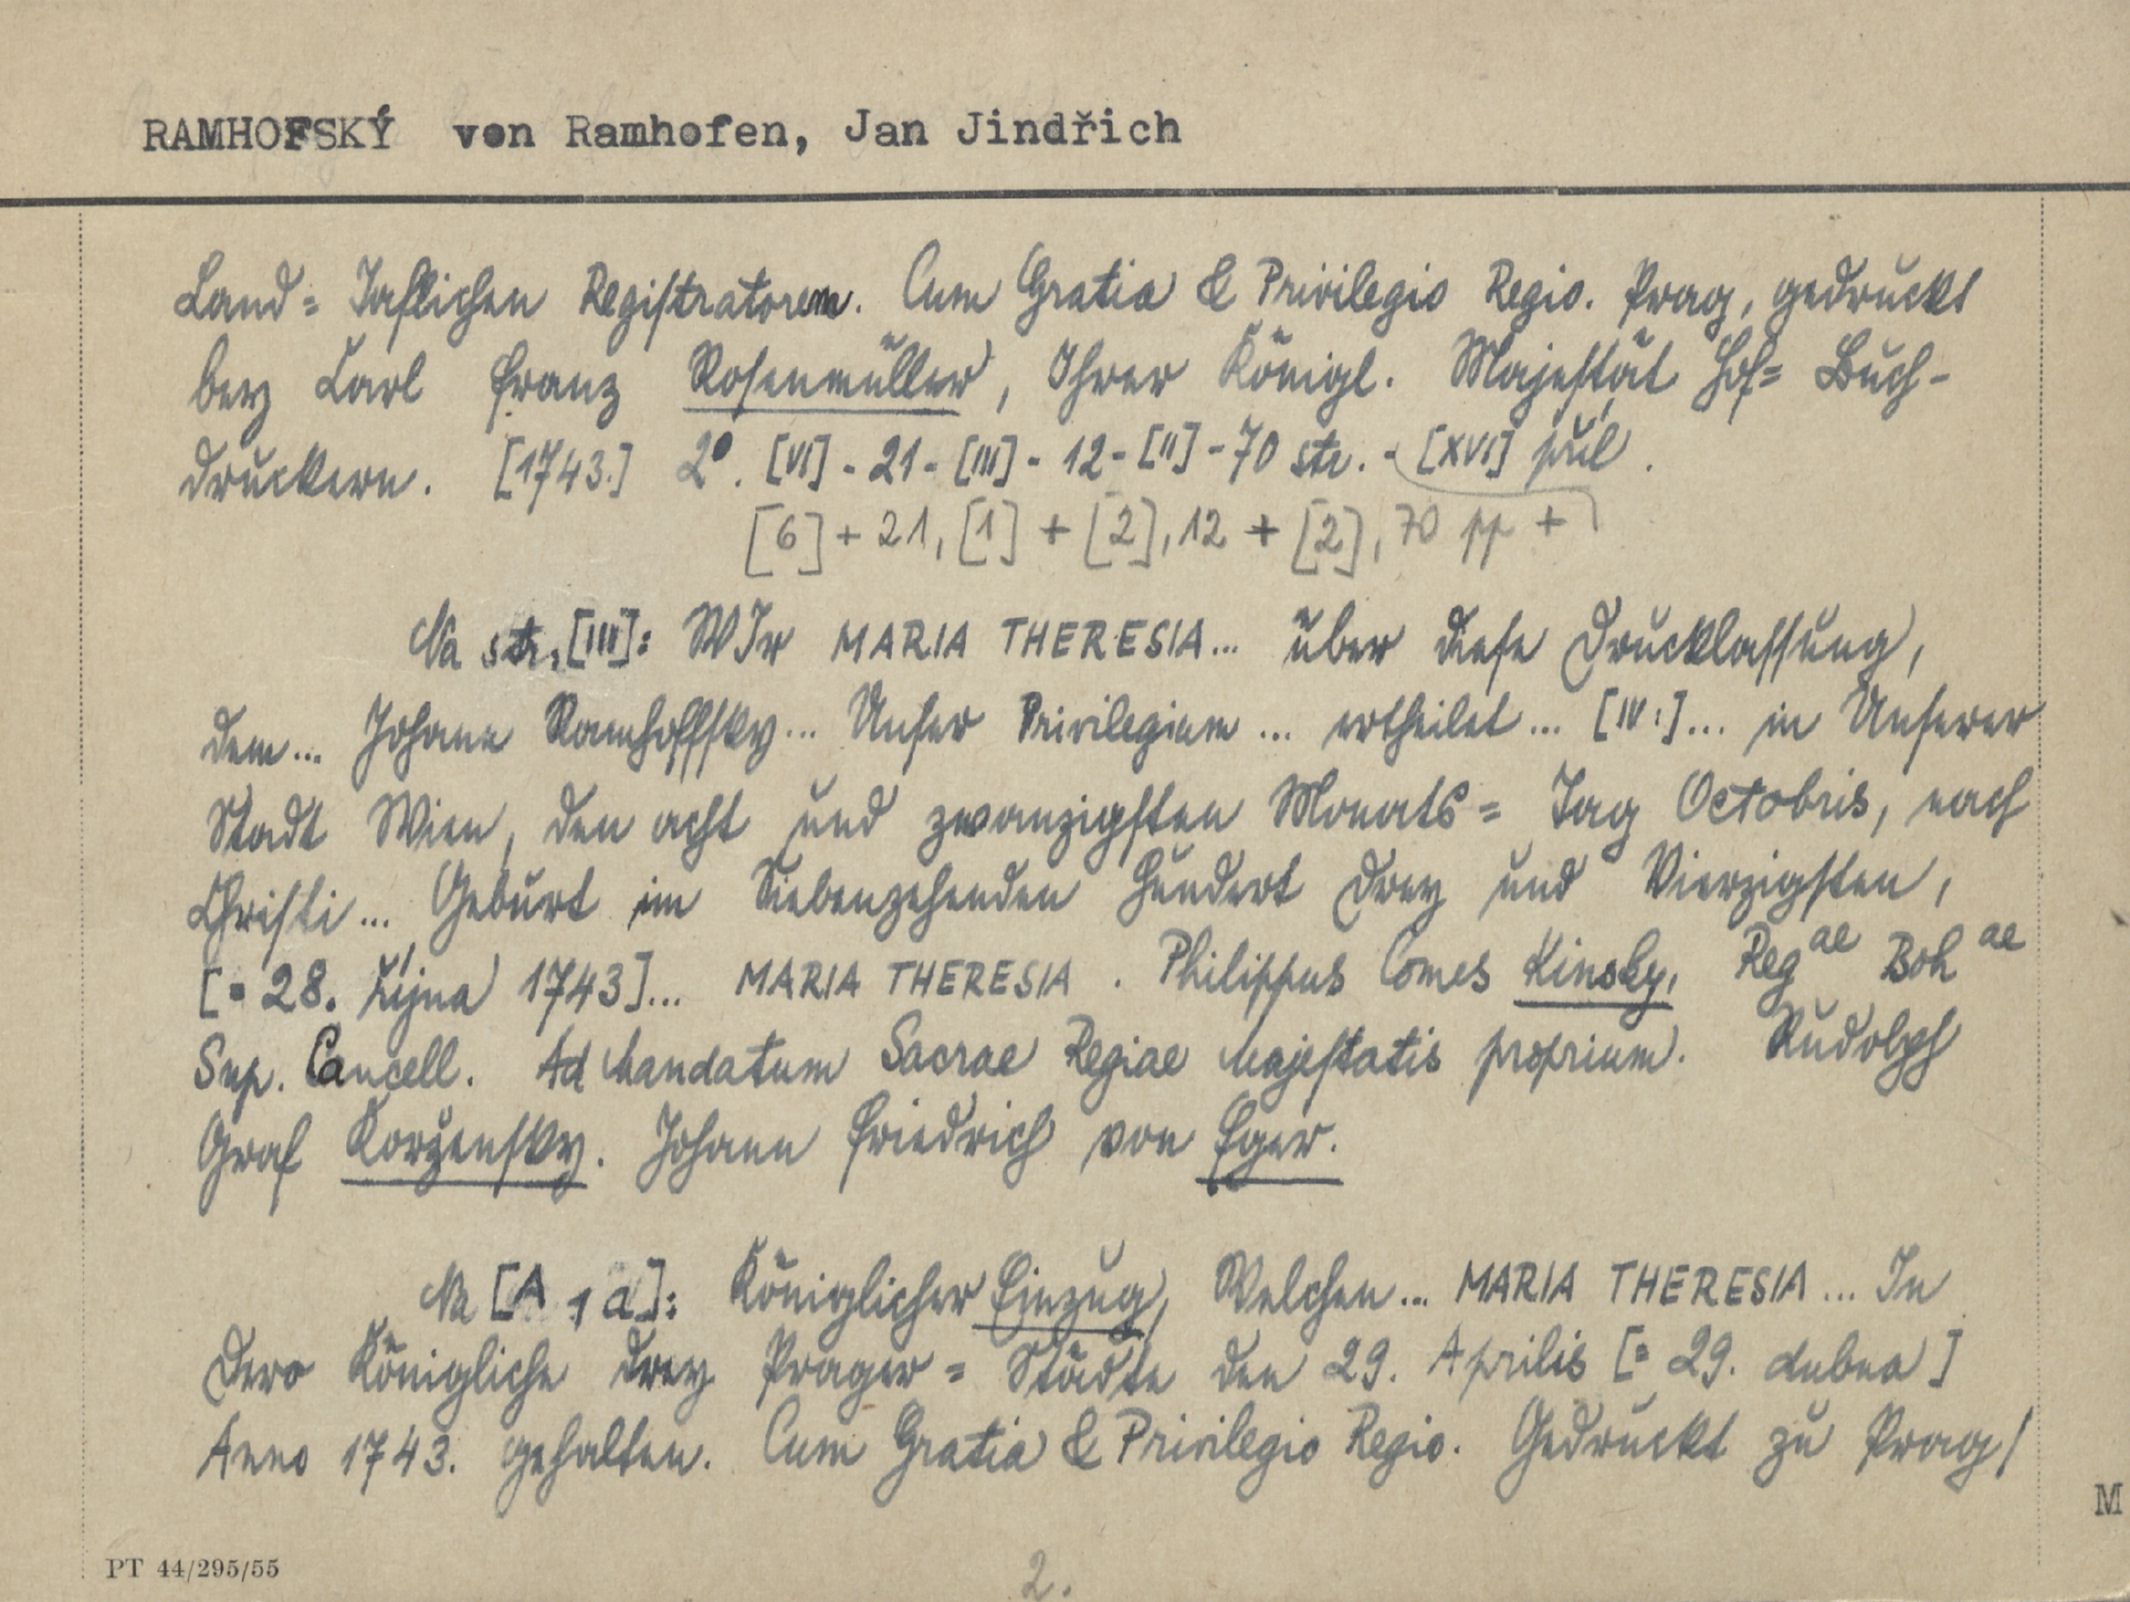 RAMHOFSKÝ von Ramhofen, Jan Jindřich
Land= Taflichen Registratorem. Cum Gratia & Privilegio Regio. Prag, gedruckt
bey Carl Franz Rosenmüller, Ihrer Königl. Majestät Hof= Buch-
druckern. [1743.] 2º. [VI] - 21 - [III] - 12 - [II] - 70 str. - [XVI] příl.
[6] + 21, [1] + [2], 12 + [2], 70 pp +
Na str. [III]: WIr MARIA THERESIA... über diese Drucklassung,
dem... Johann Ramhoffsky... Unser Privilegium ... ertheilet ... [IV:] ... in Unserer
Stadt Wien, den acht und zwanzigsten Monats= Tag Octobris, nach
Christi ... Geburt im Siebenzehenden Hundert Drey und Vierzigsten,
[= 28. Října 1743]... MARIA THERESIA. Philippus Comes Kinsky, Reg ae Boh ae
Sup. Cancell. Ad Mandatum Sacrae Regiae Majestatis proprium. Rudolph
Graf Korzensky. Johann Friedrich von Eger.
Na [A 1 a]: Königlicher Einzug, Welchen ... MARIA THERESIA ... In
Dero Königliche drey Prager= Städte den 29. Aprilis [= 29. dubna]
Anno 1743. gehalten. Cum Gratia & Privilegio Regio. Gedruckt zu Prag/
M
PT 44/295/55
2.